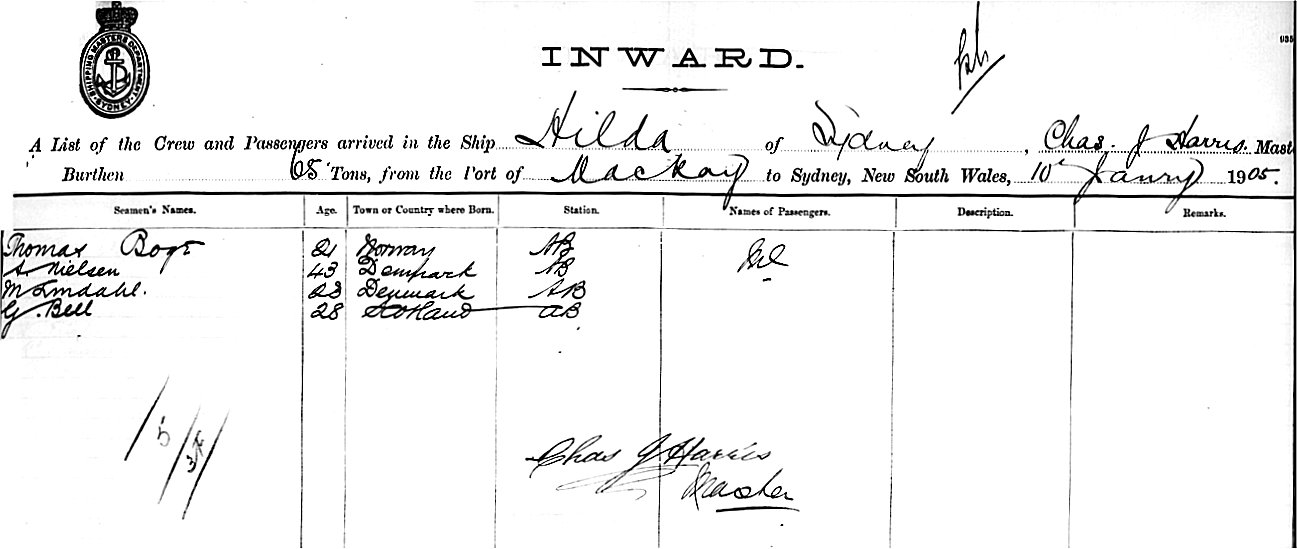 SHIPPING MASTERS DEPARTMENT SYDNEY
INWARD.
A List of the Crew and Passengers arrived in the Ship Hilda of Sydney, Chas. J Harris Mast
Burthen 65 Tons, from the Port of Mackay to Sydney, New South Wales, 10th Janry 1905.
Seamen's Names. Age. Town or Country where Born. Station. Names of Passengers. Description. Remarks.
Thomas 21 Norway AB Nil
A Nielsen 43 Denmark AB
M Lindahl. 23 Denmark AB
G. Bell 28 Scotland AB
Chas J Harris
Master